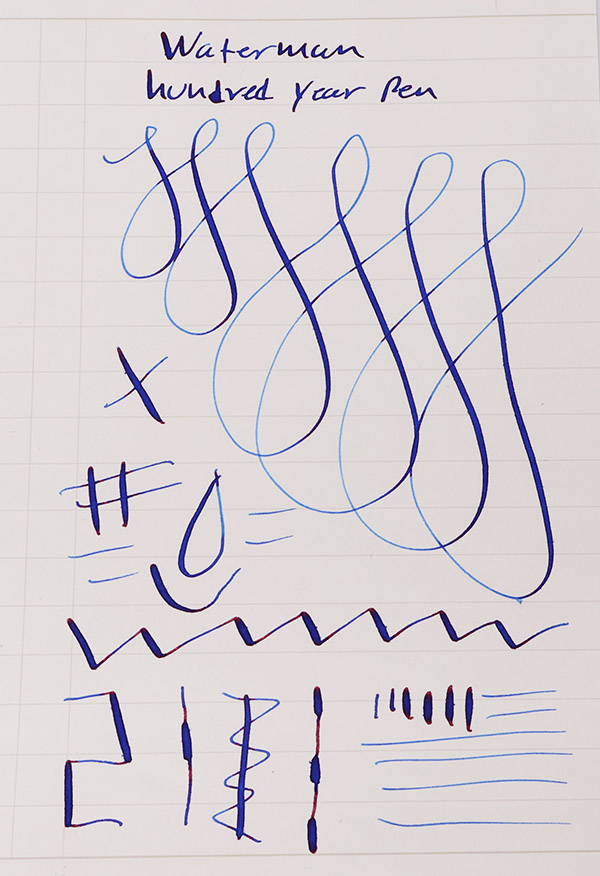 Waterman
hundred year pen